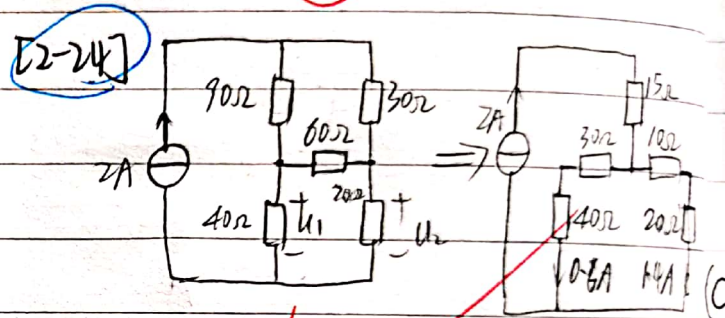 [2-24]
90Ω
30Ω
60Ω
2A
40Ω
U₁
20Ω
U₂
+
-
+
-
⇒
2A
15Ω
30Ω
10Ω
40Ω
20Ω